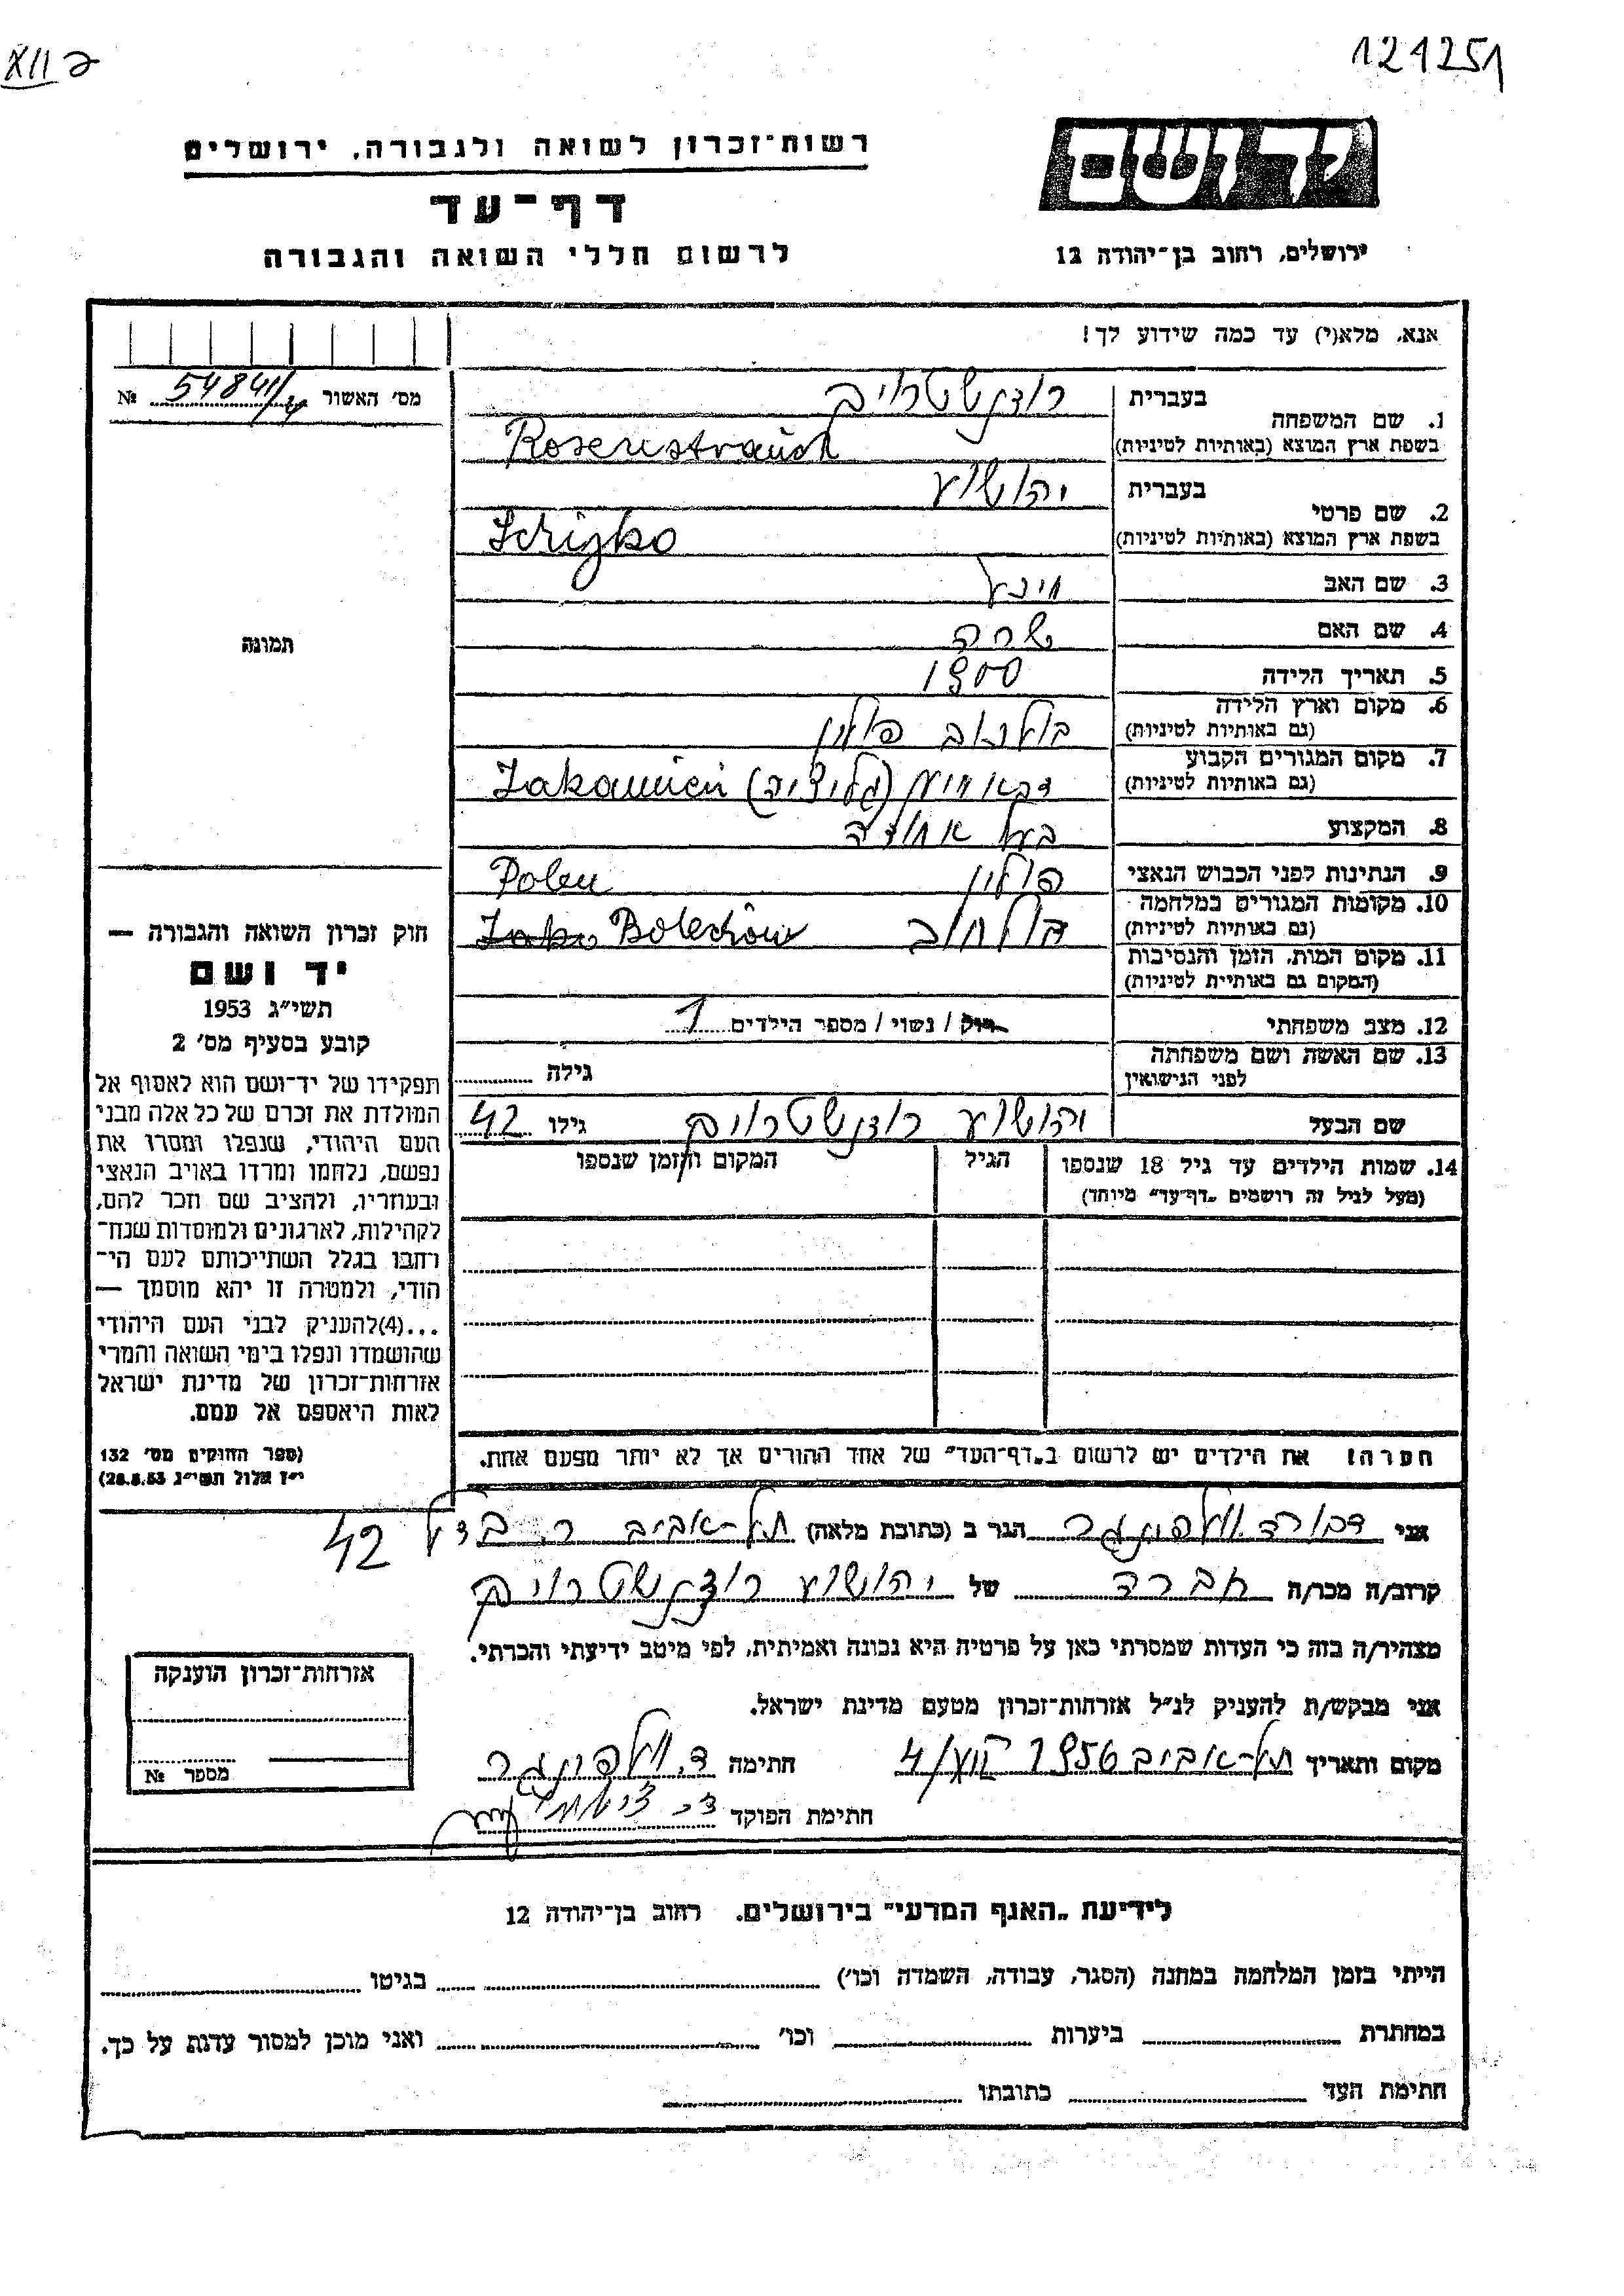 XII ב
121251
יד ושם
רשות־זכרון לשואה ולגבורה, ירושלים
דף־עד
ירושלים, רחוב בן־יהודה 12
לרשום חללי השואה והגבורה
אנא, מלא(י) עד כמה שידוע לך!
מס׳ האשור 54841/ №
1. שם המשפחה בעברית רוזנשטרויך
בשפת ארץ המוצא (באותיות לטיניות) Rosenstrauch
2. שם פרטי בעברית יהושוע
בשפת ארץ המוצא (באותיות לטיניות)
3. שם האב
4. שם האם שרה
5. תאריך הלידה 1900
6. מקום וארץ הלידה פולין
(גם באותיות לטיניות)
7. מקום המגורים הקבוע (גליציה)
(גם באותיות לטיניות)
8. המקצוע בעל אחוזה
9. הנתינות לפני הכבוש הנאצי פולין Polen
10. מקומות המגורים במלחמה בולחוב Bolechów
(גם באותיות לטיניות)
11. מקום המות, הזמן והנסיבות
(המקום גם באותיית לטיניות)
12. מצב משפחתי רוק / נשוי / מספר הילדים 1
13. שם האשה ושם משפחתה גילה
לפני הנישואין
שם הבעל יהושוע רוזנשטרויך גילו 42
14. שמות הילדים עד גיל 18 שנספו הגיל המקום והזמן שנספו
(מעל לגיל זה רושמים „דף־עד״ מיוחד)
הערה! את הילדים יש לרשום ב„דף־העד״ של אחד ההורים אך לא יותר מפעם אחת.
תמונה
חוק זכרון השואה והגבורה —
יד ושם
תשי״ג 1953
קובע בסעיף מס׳ 2
תפקידו של יד־ושם הוא לאסוף אל
המולדת את זכרם של כל אלה מבני
העם היהודי, שנפלו ומסרו את
נפשם, נלחמו ומרדו באויב הנאצי
ובעוזריו, ולהציב שם וזכר להם,
לקהילות, לארגונים ולמוסדות שנח־
רבו בגלל השתייכותם לעם הי־
הודי, ולמטרה זו יהא מוסמך —
...(4)להעניק לבני העם היהודי
שהושמדו ונפלו בימי השואה והמרי
אזרחות־זכרון של מדינת ישראל
לאות היאספם אל עמם.
(ספר החוקים מס׳ 132
י״ז אלול תשי״ג 28.8.53)
אני דבורה הגר ב (כתובת מלאה) תל־אביב ר. בזל 42
קרוב/ה מכר/ה חברה של יהושוע רוזנשטרויך
מצהיר/ה בזה כי העדות שמסרתי כאן על פרטיה היא נכונה ואמיתית, לפי מיטב ידיעתי והכרתי.
אני מבקש/ת להעניק לנ״ל אזרחות־זכרון מטעם מדינת ישראל.
מקום ותאריך תל־אביב 1956 חתימה
חתימת הפוקד
אזרחות־זכרון הוענקה
מספר №
לידיעת „האגף המדעי״ בירושלים. רחוב בן־יהודה 12
הייתי בזמן המלחמה במחנה (הסגר, עבודה, השמדה וכו׳) בגיטו
במחתרת ביערות וכו׳ ואני מוכן למסור עדות על כך.
חתימת העד כתובתו